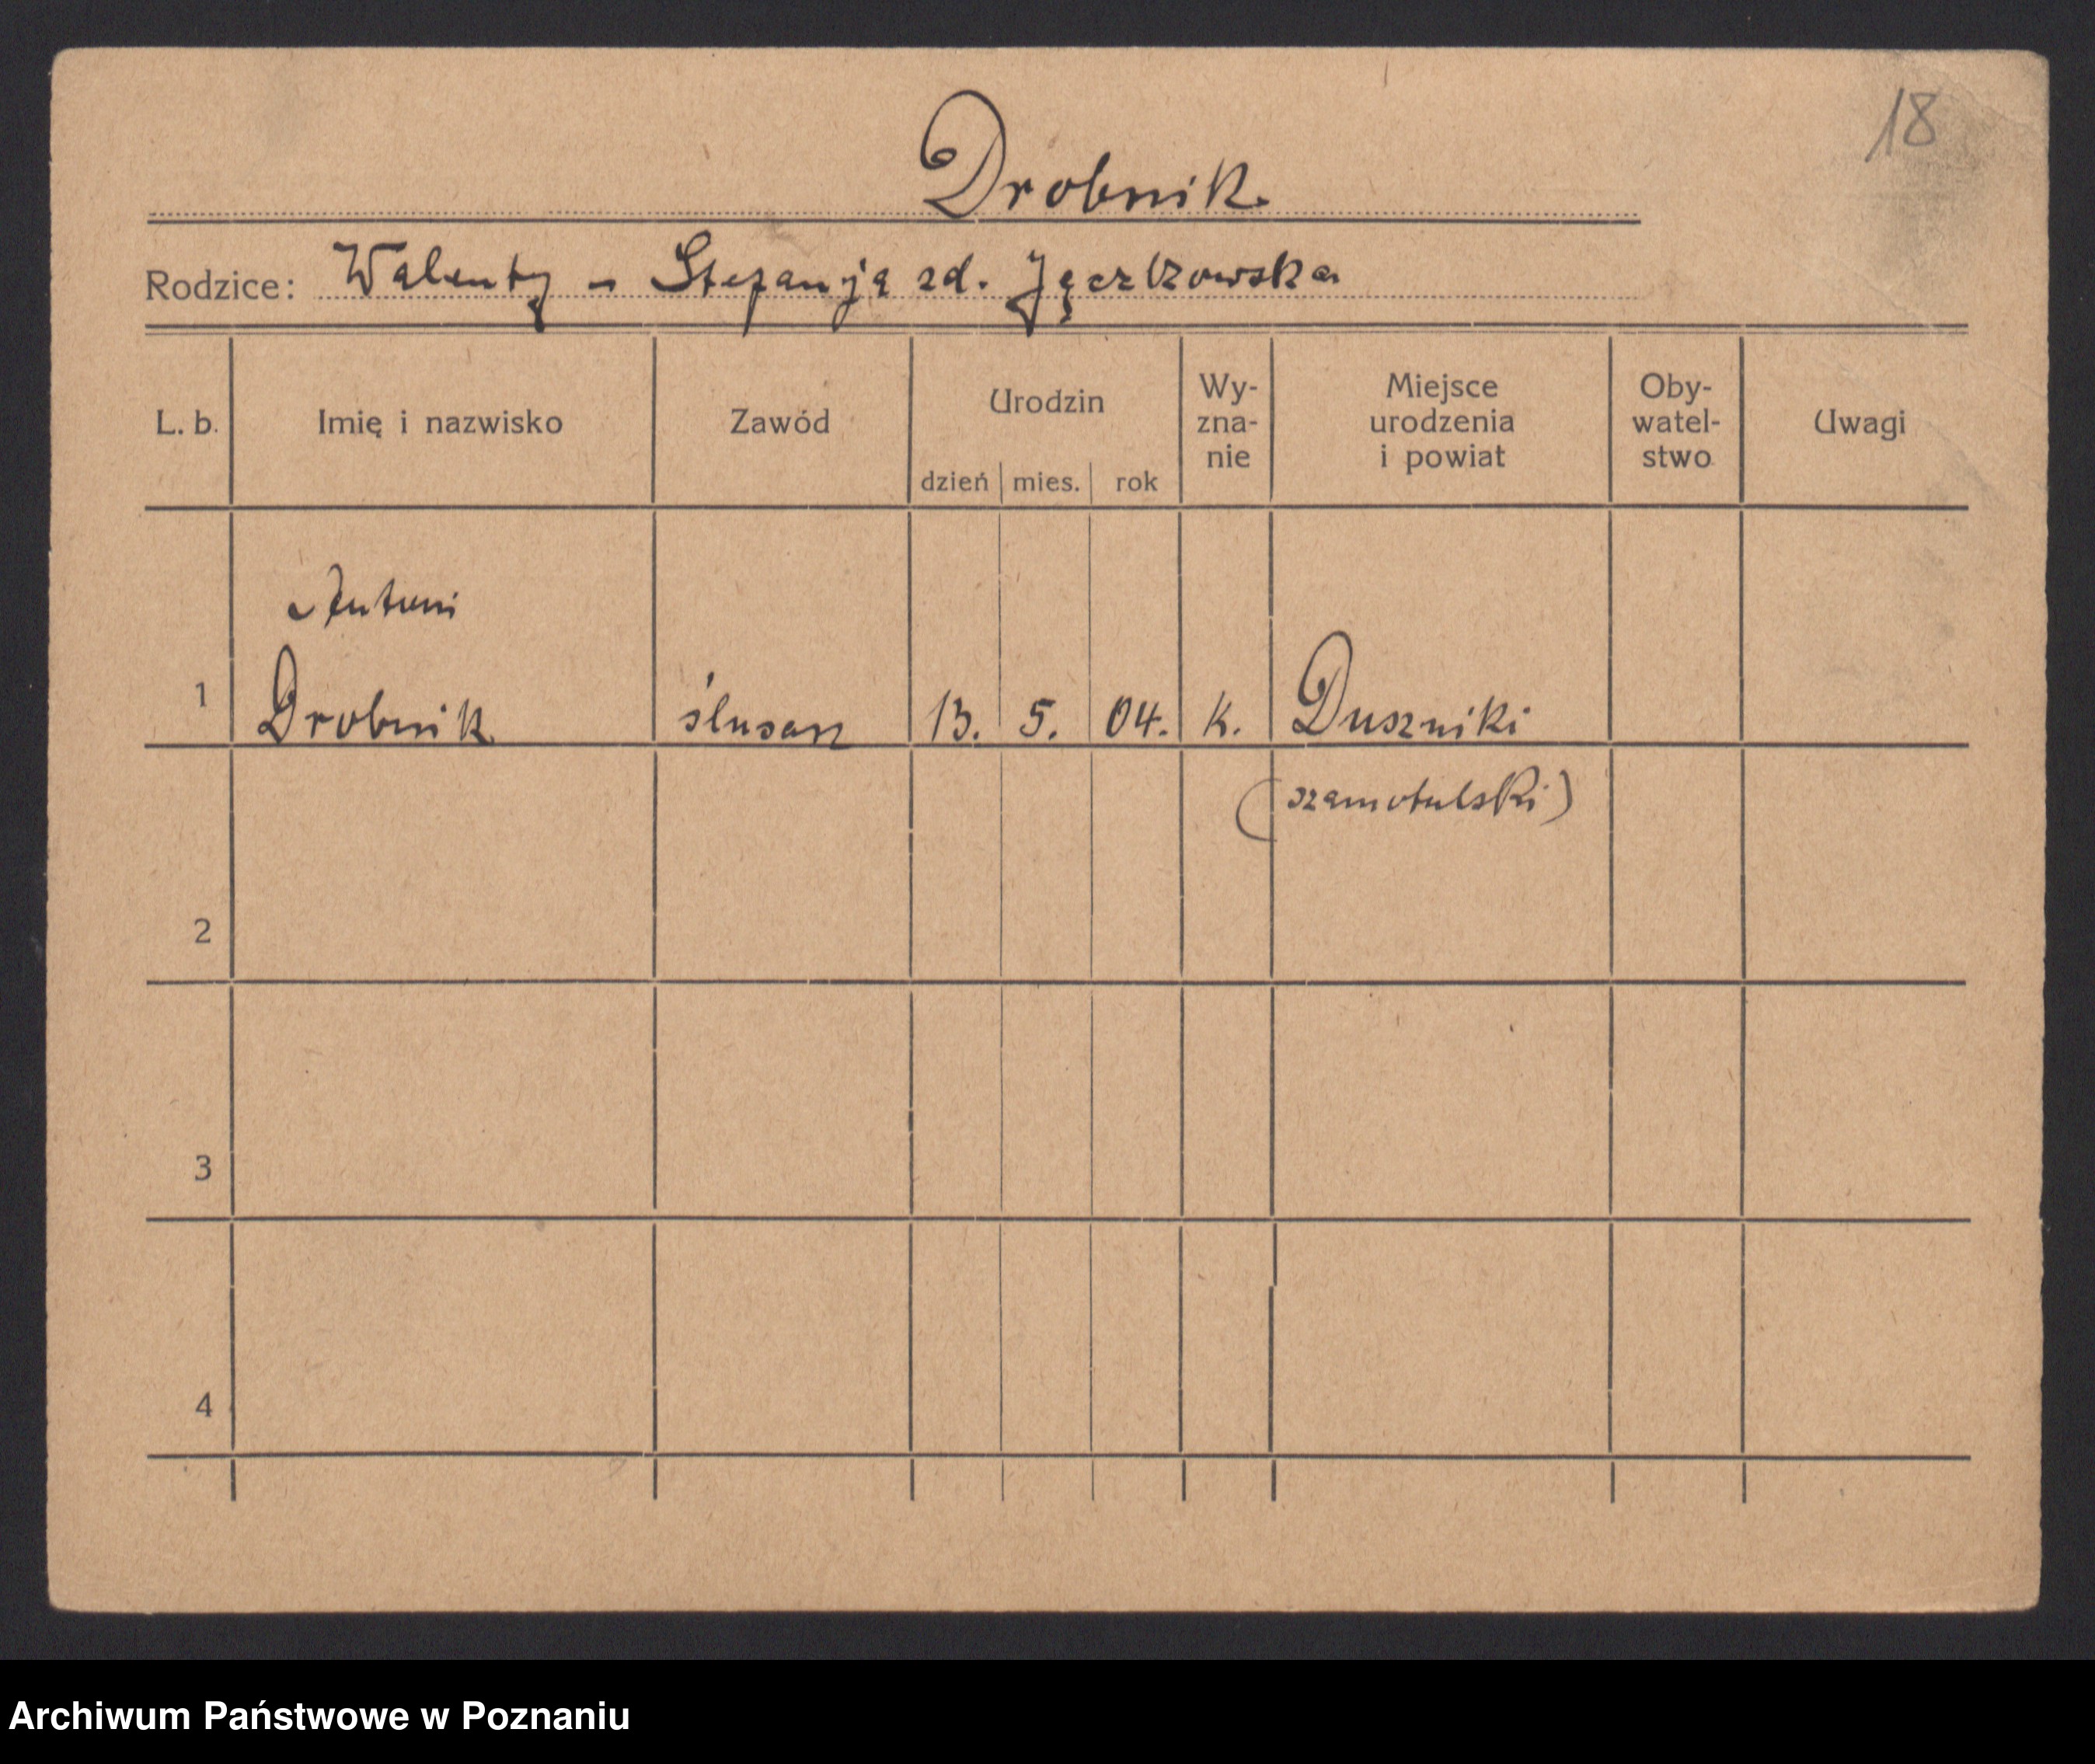 18
Drobnik
Rodzice: Walenty - Stefanja zd. Jączkowska
L. b. Imię i nazwisko Zawód Urodzin dzień mies. rok Wy-zna-nie Miejsce urodzenia i powiat Oby-watel-stwo Uwagi
Antoni
1 Drobnik ślusarz 13. 5. 04. k. Duszniki
(szamotulski)
2
3
4
Archiwum Państwowe w Poznaniu